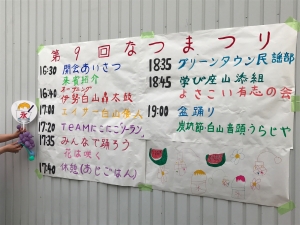 第9回なつまつり
16:30 開会あいさつ
来賓紹介
オープニング
16:40 伊勢白山轟太鼓
17:00 エイサー白山
17:20 TEAMにこにこソーラン
17:35 みんなで踊ろう
花は咲く
17:40 休憩(おじごはん)
18:35 グリーンタウン民謡部
18:45 学び座山添組
よさこい有志の会
19:00 盆踊り
炭坑節・白山音頭うらじゃ
氷